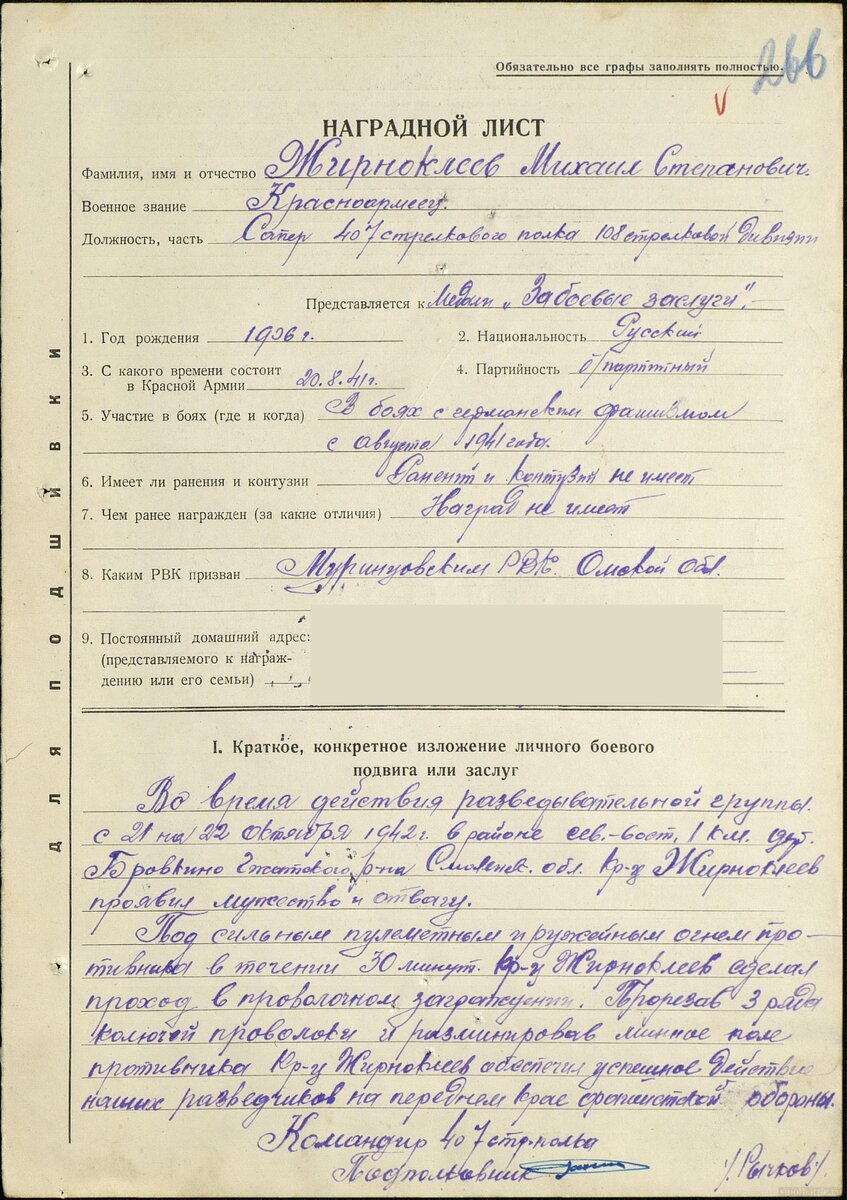 Обязательно все графы заполнять полностью.
266
V
НАГРАДНОЙ ЛИСТ
Фамилия, имя и отчество Жирноклеев Михаил Степанович.
Военное звание Красноармеец.
Должность, часть Сапер 407 стрелкового полка 108 стрелковой дивизии
Представляется к Медали „За боевые заслуги".
1. Год рождения 1906 г. 2. Национальность Русский
3. С какого времени состоит в Красной Армии 20.8.41 г. 4. Партийность б/партийный
5. Участие в боях (где и когда) В боях с германским фашизмом
с августа 1941 года.
6. Имеет ли ранения и контузии Ранений и контузий не имеет
7. Чем ранее награжден (за какие отличия) Наград не имеет
8. Каким РВК призван Муринцовским РВК. Омской обл.
9. Постоянный домашний адрес:
(представляемого к награж-
дению или его семьи)
ДЛЯ ПОДШИВКИ
I. Краткое, конкретное изложение личного боевого
подвига или заслуг
Во время действия разведывательной группы
с 21 на 22 октября 1942 г. в районе сев.-вост. 1 км. дер.
Бровкино Гжатского р-на Смоленск. обл. кр-ц Жирноклеев
проявил мужество и отвагу.
Под сильным пулеметным и ружейным огнем про-
тивника в течении 30 минут. кр-ц Жирноклеев сделал
проход в проволочном заграждении. Прорезав 3 ряда
колючей проволоки и разминировав минное поле
противника Кр-ц Жирноклеев обеспечил успешное действие
наших разведчиков на переднем крае фашистской обороны.
Командир 407 стр. полка
Подполковник /Рычков/.